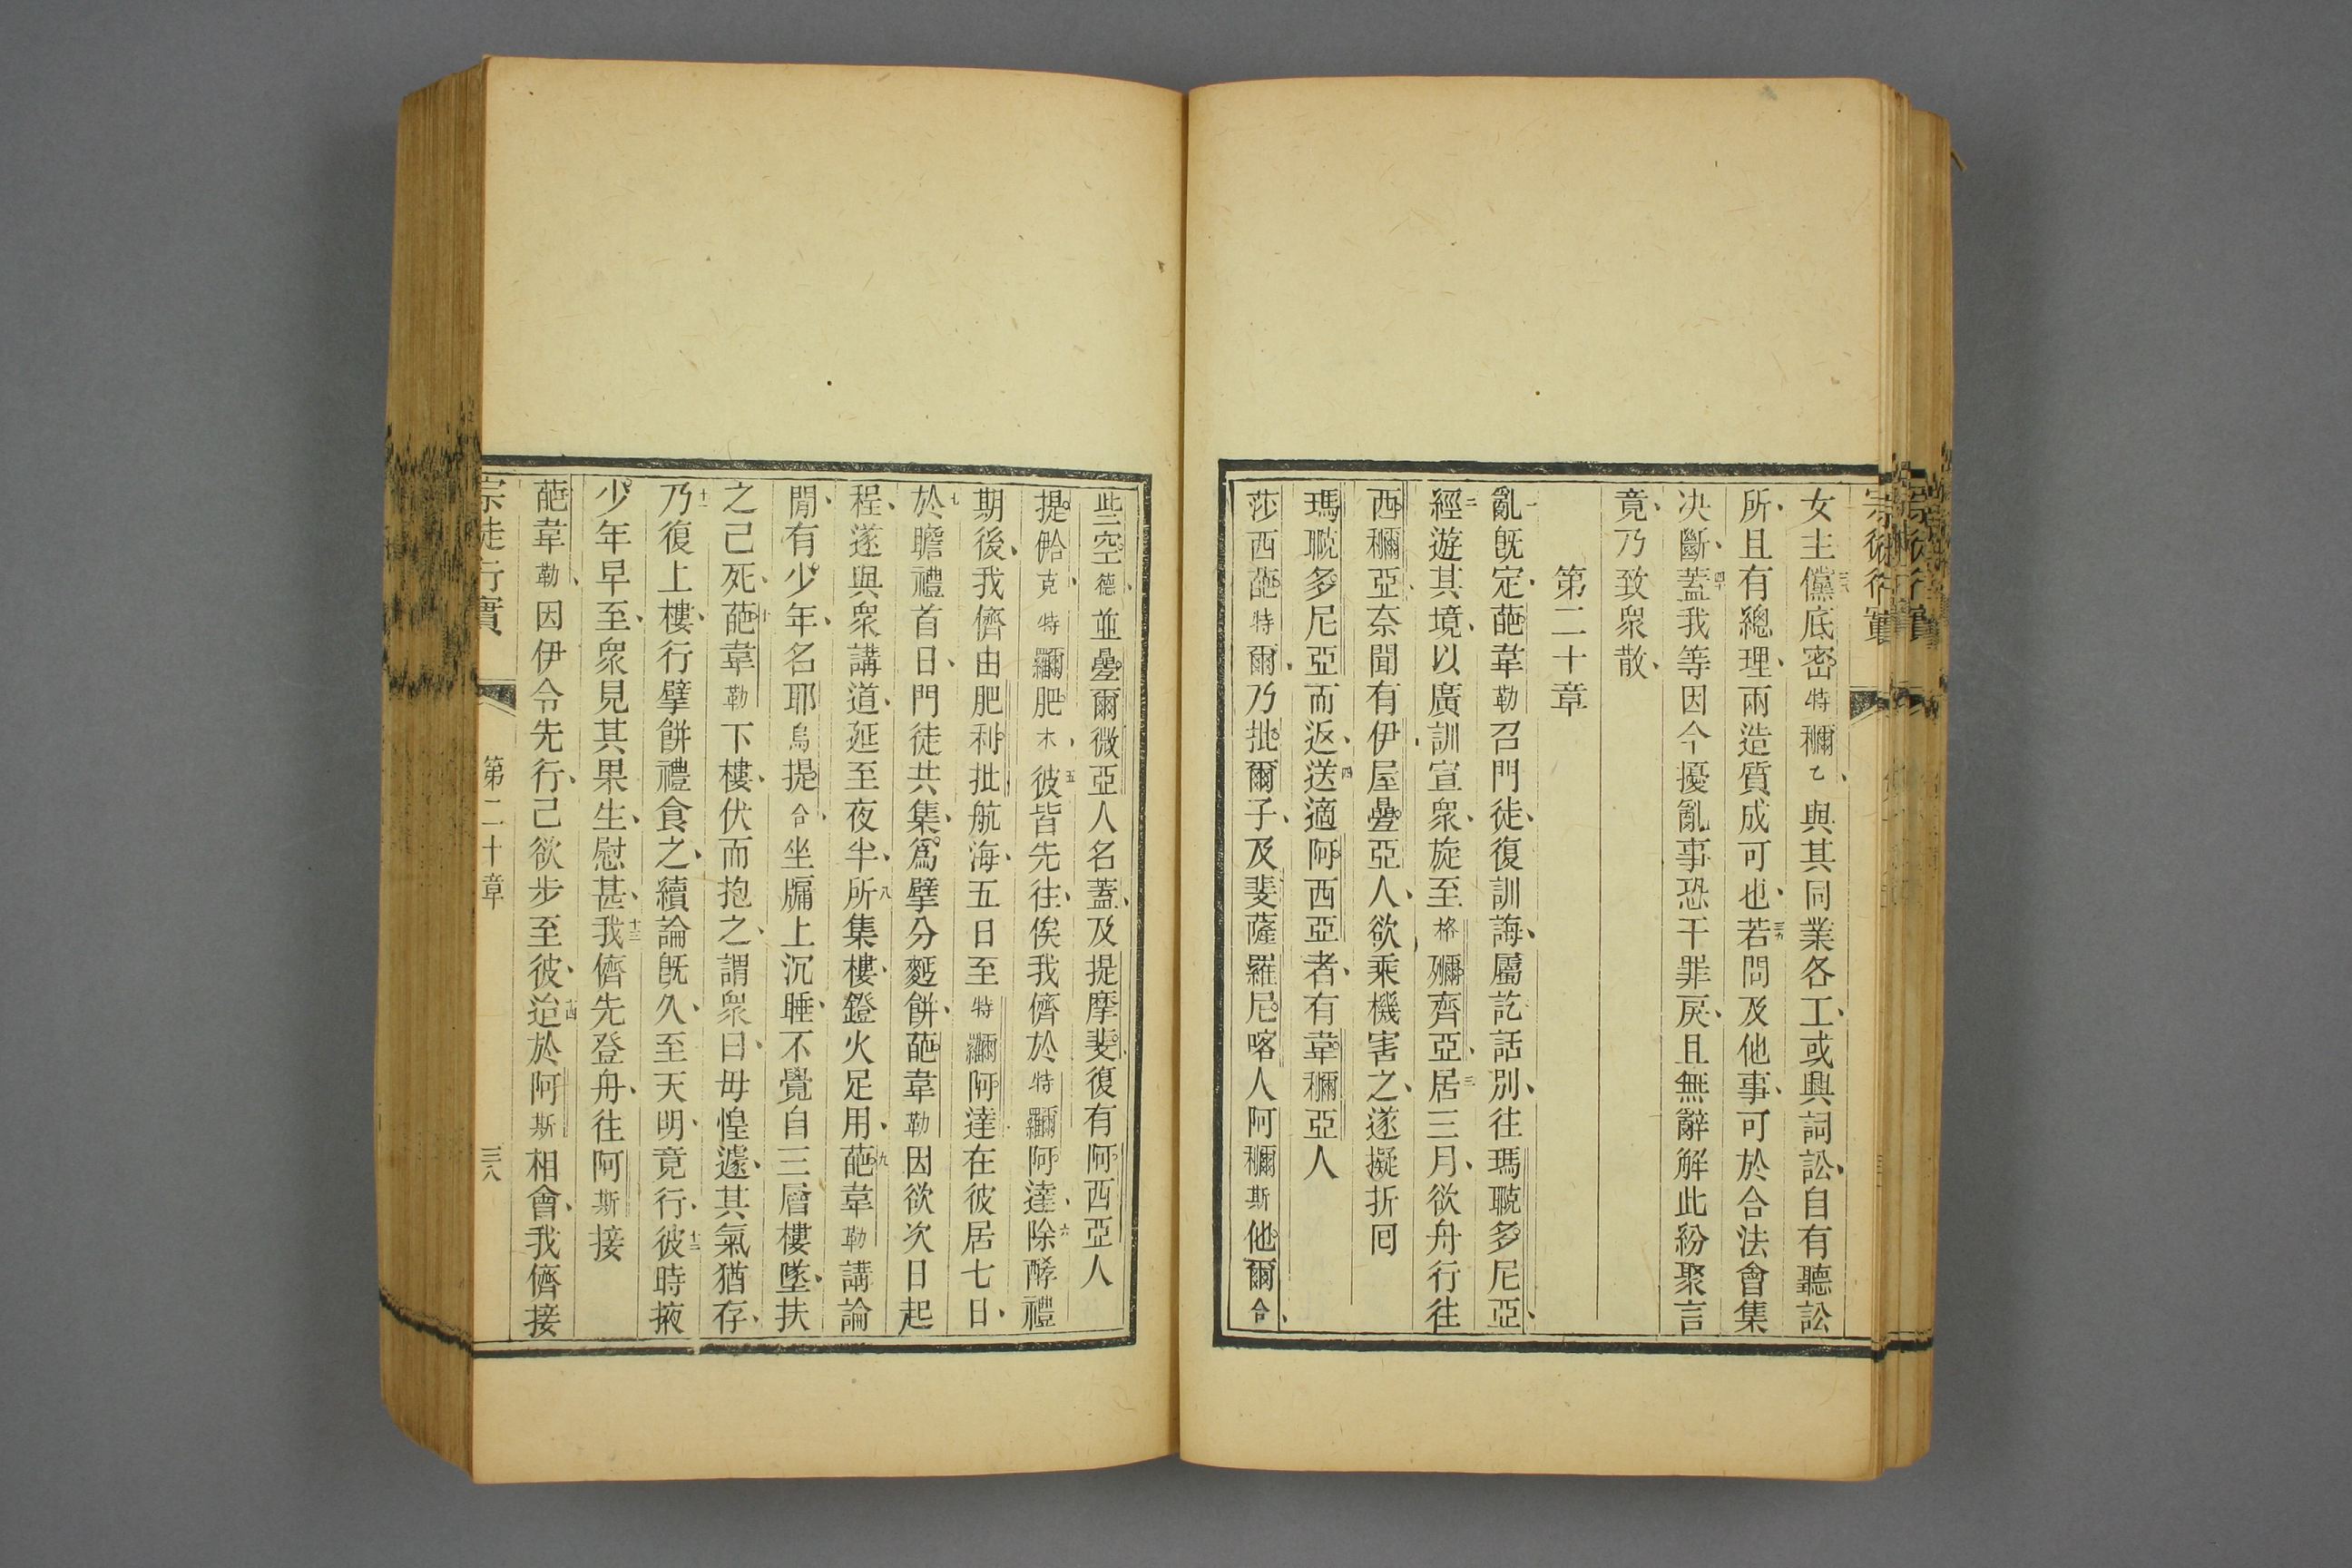 宗徒行實
女主三八儻底密特穪乙與其同業各工、或興詞訟、自有聽訟
所、且有總理、兩造質成可也、三九若問及他事、可於合法會集
决斷、四十蓋我等因今擾亂事、恐干罪戾、且無辭解此紛聚、言
竟、乃致衆散、
第二十章
一亂旣定、葩韋勒召門徒、復訓誨、屬訖話別、往瑪覨多尼亞、
二經遊其境、以廣訓宣衆、旋至格殢齊亞、三居三月、欲舟行往
西穪亞、奈聞有伊屋疊亞人、欲乘機害之、遂擬折囘
瑪覨多尼亞而返、四送適阿西亞者、有韋穪亞人
莎西葩特爾、乃批爾子、及斐薩羅尼喀人阿穪斯他爾合、
些空德、並疊爾微亞人名蓋、及提摩斐、復有阿西亞人
提鮯克、特羅肥木、五彼皆先往、俟我儕於特羅阿達、六除酵禮
期後、我儕由肥利批航海、五日至特羅阿達、在彼居七日、
七於瞻禮首日、門徒共集、爲擘分麪餅、葩韋勒因欲次日起
程、遂與衆講道、延至夜半、八所集樓、鐙火足用、九葩韋勒講論
閒、有少年、名耶烏提合、坐牖上沉睡、不覺自三層樓墜、扶
之已死、十葩韋勒下樓、伏而抱之、謂衆曰、毋惶遽、其氣猶存、
十一乃復上樓、行擘餅禮食之、續論旣久、至天明、竟行、十二彼時掖
少年早至、衆見其果生、慰甚、十三我儕先登舟、往阿斯接
葩韋勒、因伊令先行、己欲步至彼、十四迨於阿斯相會、我儕接
宗徒行實 第二十章 三八